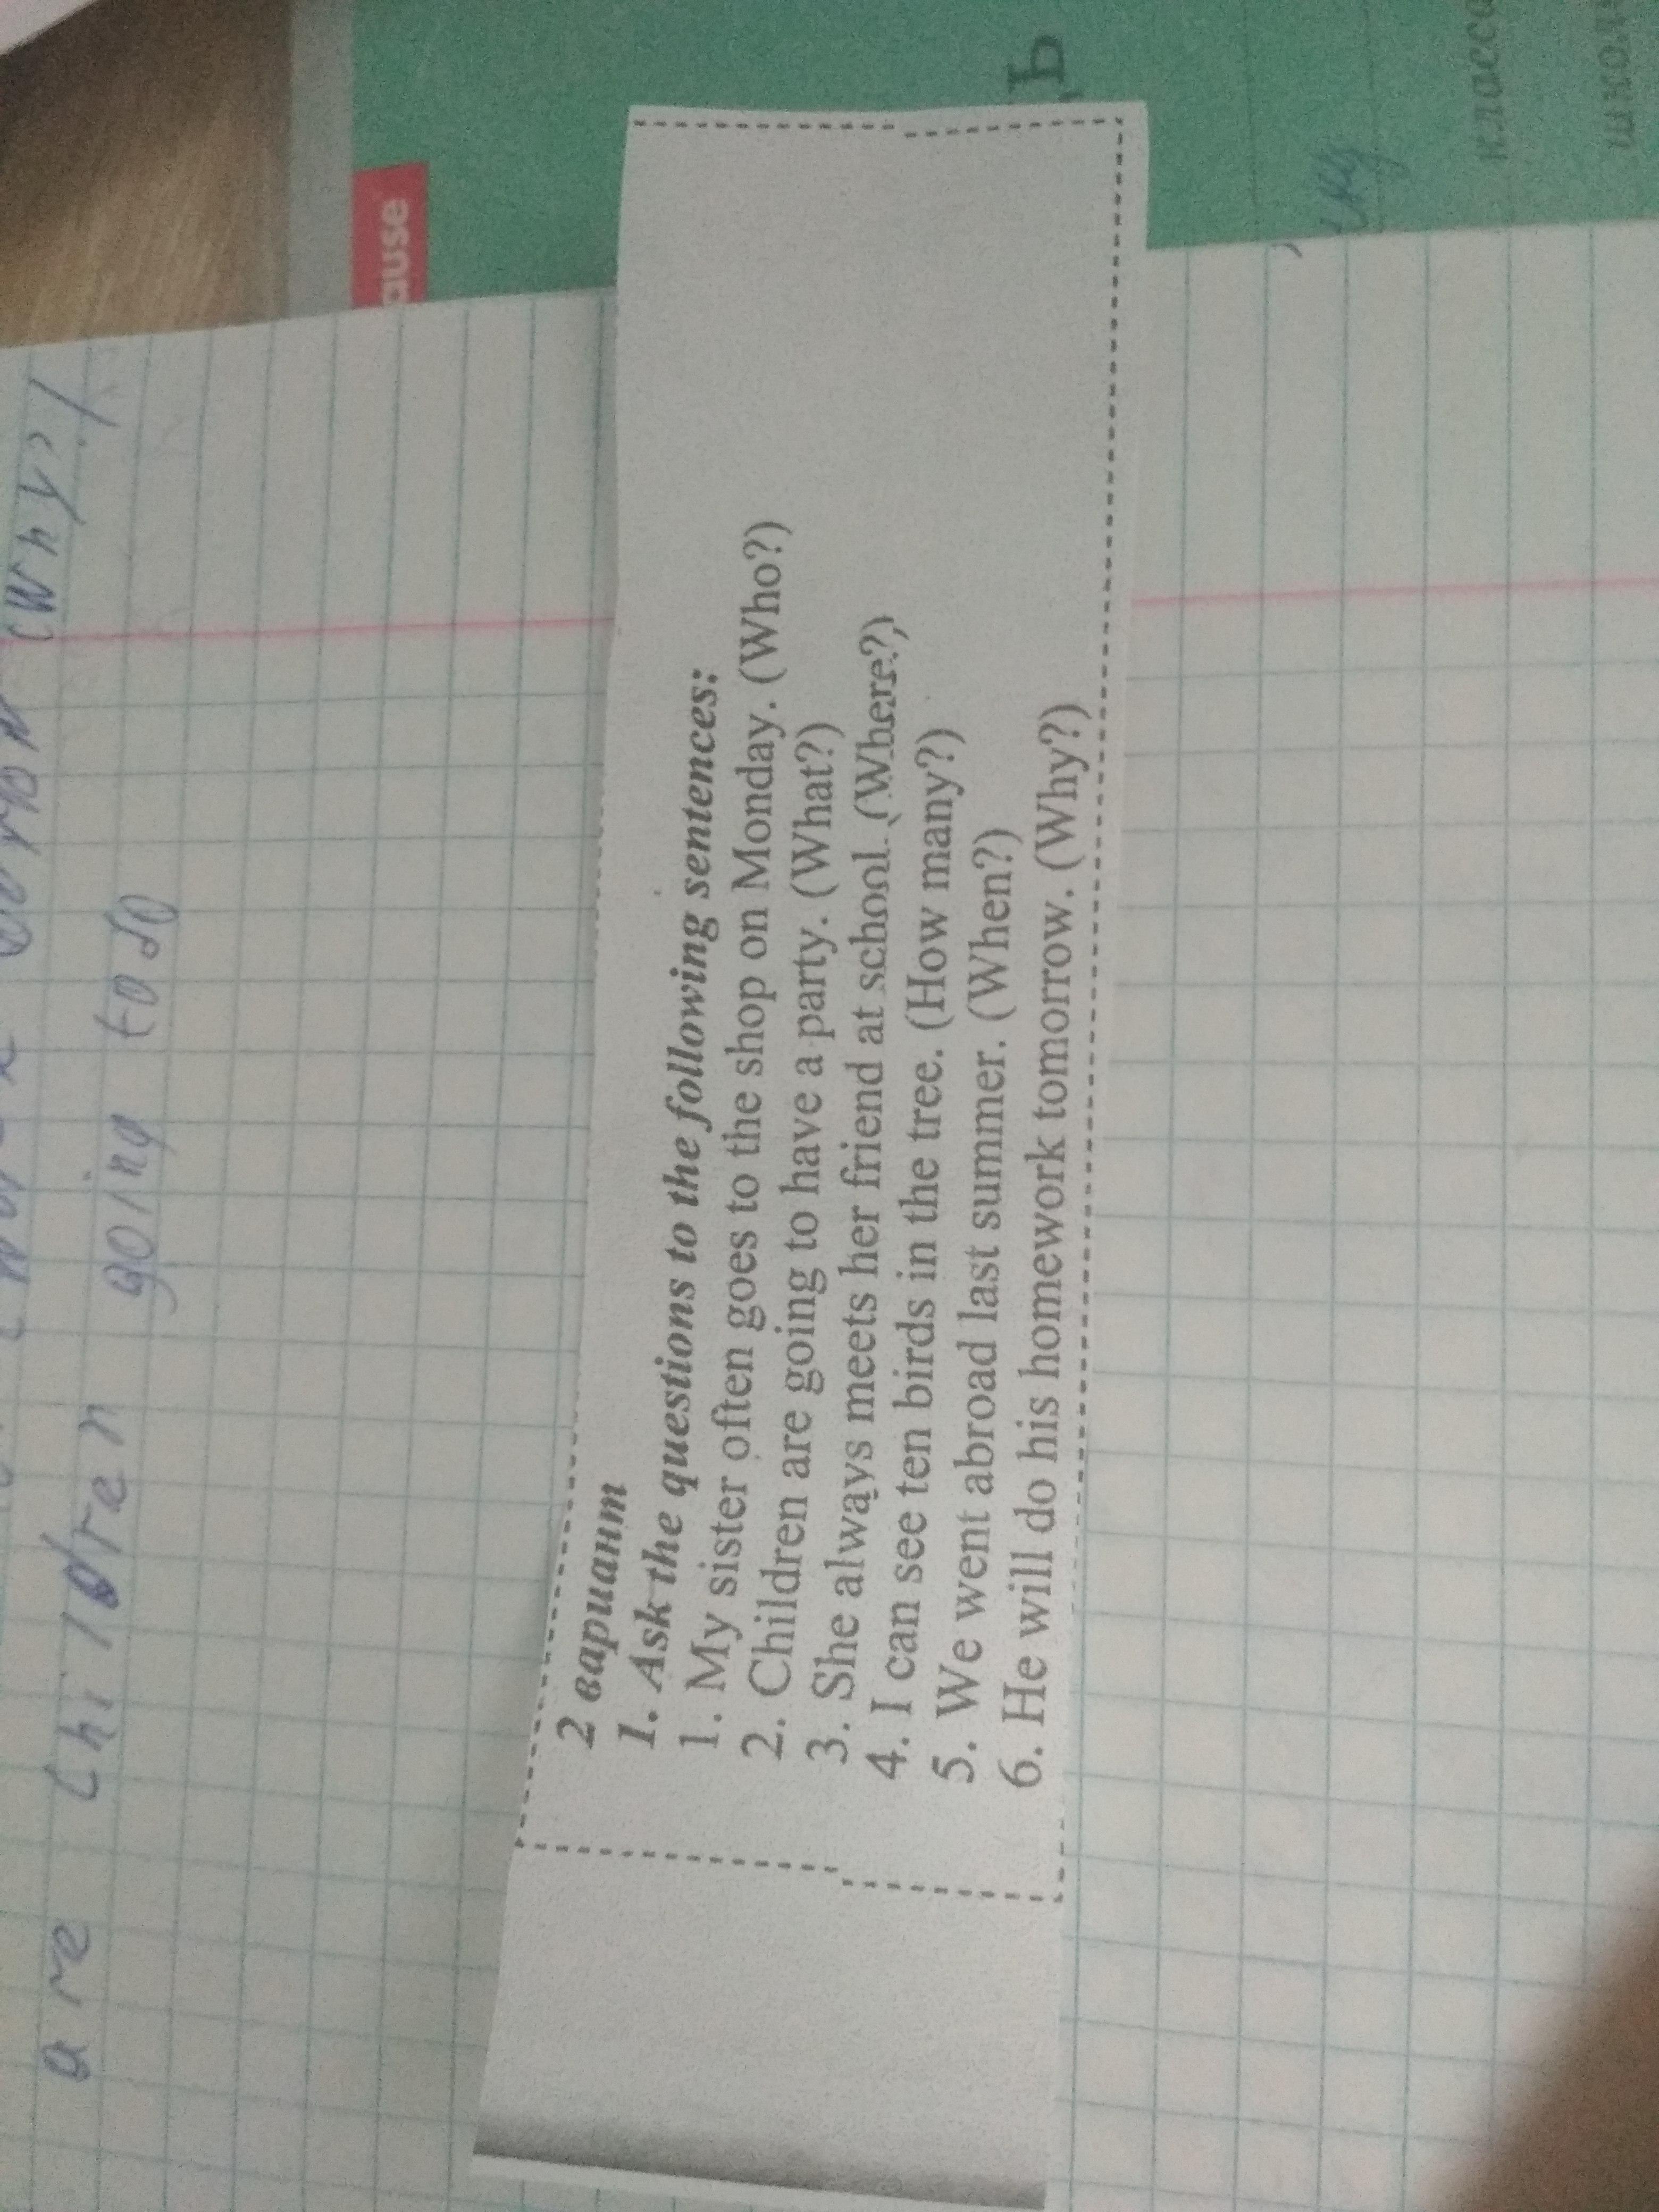 (Why?)
are children going to do
2 вариант
1. Ask the questions to the following sentences:
1. My sister often goes to the shop on Monday. (Who?)
2. Children are going to have a party. (What?)
3. She always meets her friend at school. (Where?)
4. I can see ten birds in the tree. (How many?)
5. We went abroad last summer. (When?)
6. He will do his homework tomorrow. (Why?)
ause
Ь
класса